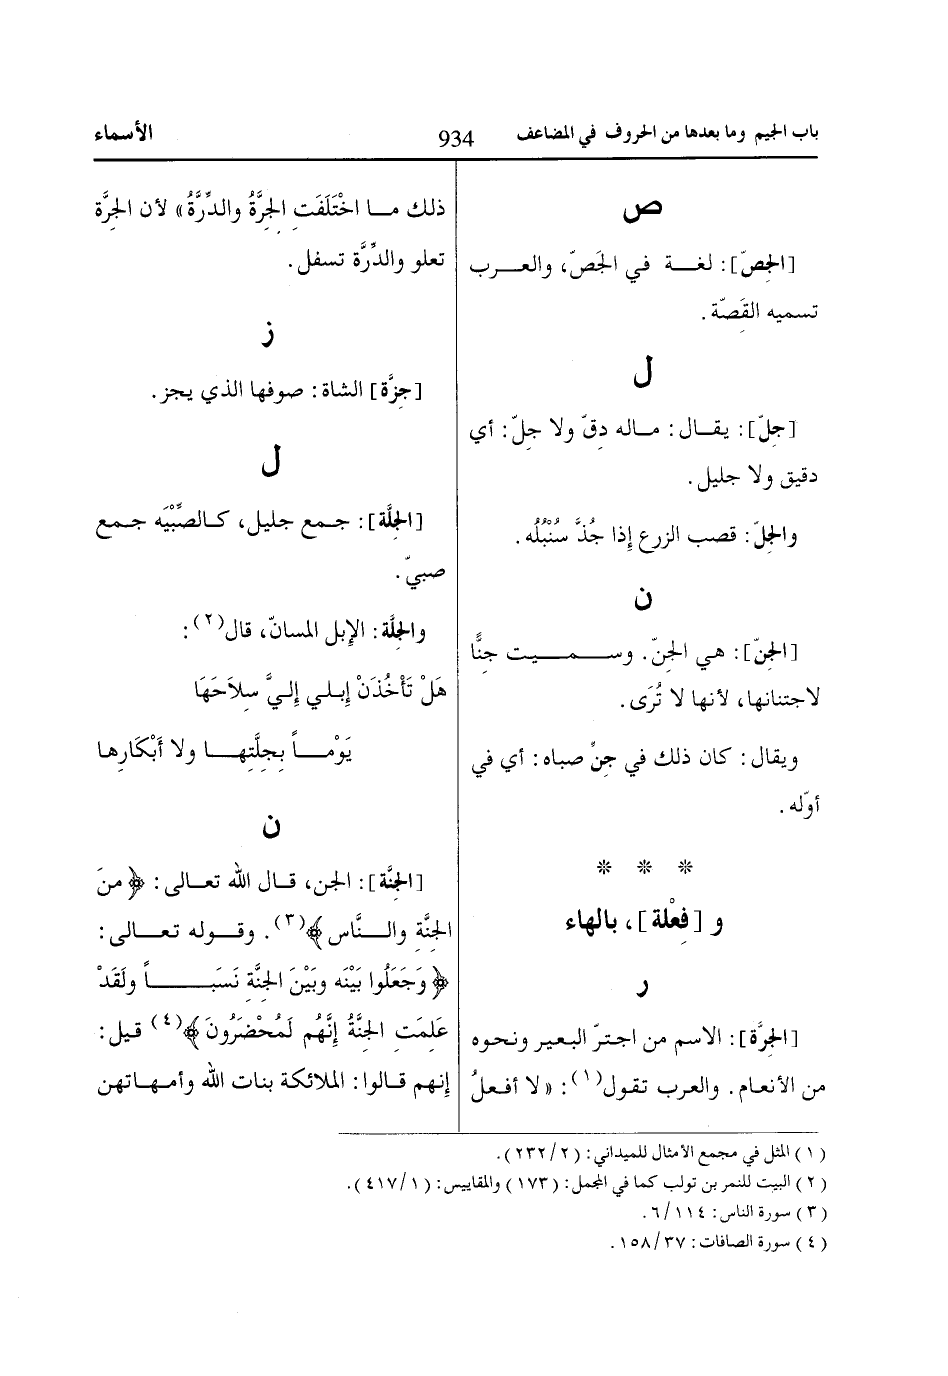 باب الجيم وما بعدها من الحروف في المضاعف
934
الأسماء
ص
[الجِصّ]: لغة في الجَصّ، والعرب
تسميه القَصّة.
ل
[جِلّ]: يقال: ماله دِقّ ولا جِلّ: أي
دقيق ولا جليل.
والجِلّ: قصب الزرع إذا جُذَّ سُنْبُلُه.
ن
[الجِنّ]: هي الجِنّ. وسميت جِنًّا
لاجتنانها، لأنها لا تُرَى.
ويقال: كان ذلك في جِنِّ صباه: أي في
أوّله.
* * *
و [فِعْلة]، بالهاء
ر
[الجِرَّة]: الاسم من اجترّ البعير ونحوه
من الأنعام. والعرب تقول(١): «لا أفعلُ
ذلك ما اخْتَلَفَتِ الجِرَّةُ والدِّرَّةُ» لأن الجِرَّة
تعلو والدِّرَّة تسفل.
ز
[جِزَّة] الشاة: صوفها الذي يجز.
ل
[الجِلَّة]: جمع جليل، كالصِّبْيَه جمع
صبيّ.
والجِلَّة: الإبل المسانّ، قال(٢):
هَلْ تَأْخُذَنْ إبلي إليَّ سلاَحَهَا
يَوْماً بجِلَّتِها ولا أَبْكَارِها
ن
[الجِنَّة]: الجن، قال الله تعالى: ﴿منَ
الجِنَّةِ والنَّاسِ﴾(٣). وقوله تعالى:
﴿وَجَعَلُوا بَيْنَه وبَيْنَ الجِنَّة نَسَباً ولَقَدْ
عَلمَت الجِنَّةُ إنَّهُم لَمُحْضَرُونَ﴾(٤) قيل:
إنهم قالوا: الملائكة بنات الله وأمهاتهن
(١) المثل في مجمع الأمثال للميداني: (٢/٢٣٢).
(٢) البيت للنمر بن تولب كما في المجمل: (١٧٣) والمقاييس: (١/٤١٧).
(٣) سورة الناس: ١١٤/٦.
(٤) سورة الصافات: ٣٧/١٥٨.